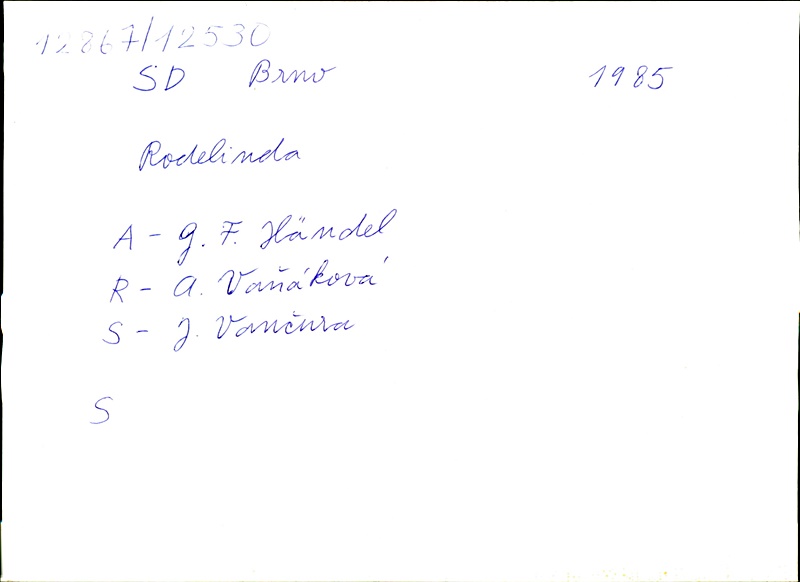 12867/12530
SD Brno 1985
Rodelinda
A - G. F. Händel
R - A. Vaňáková
S - J. Vančura
S